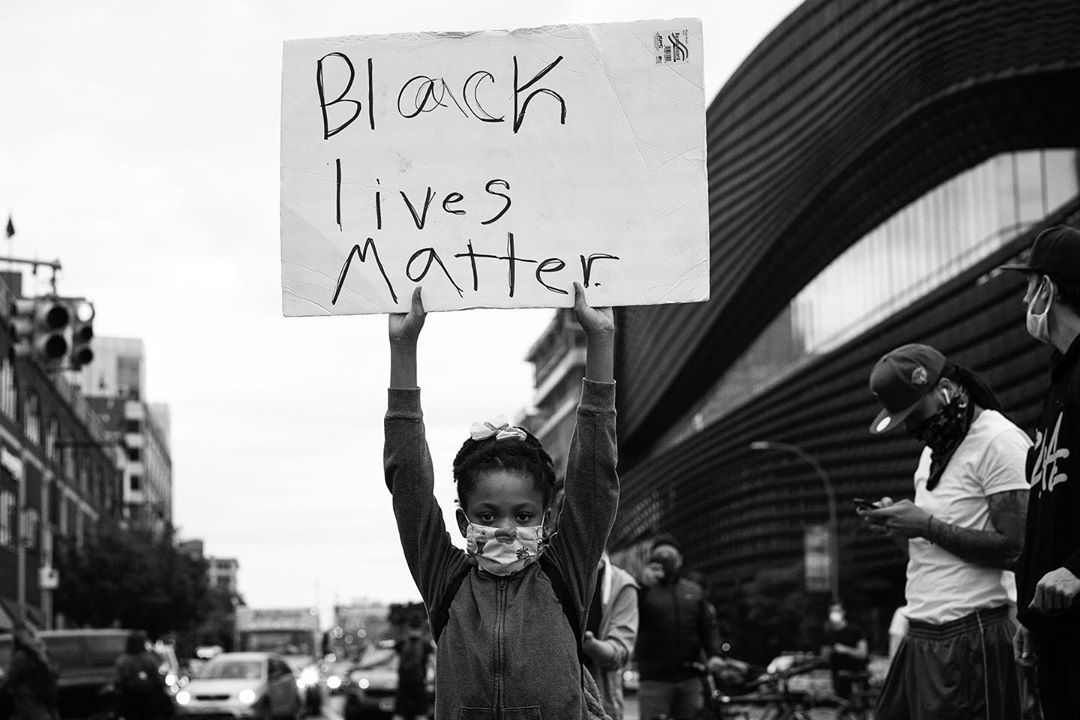 Black
lives
Matter.